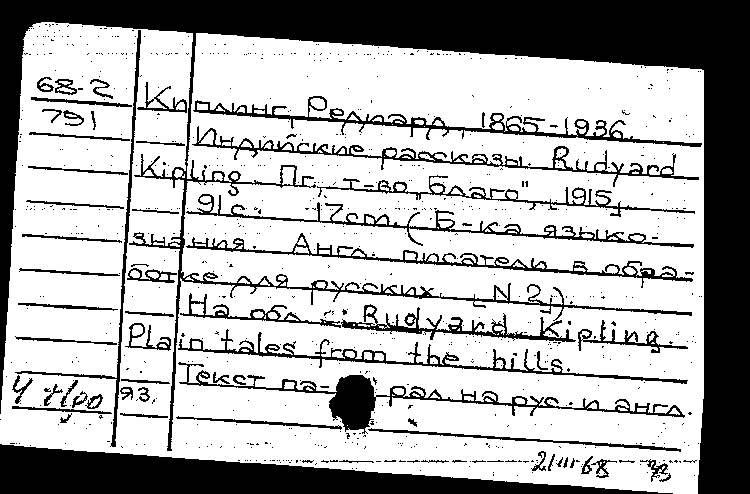 68-2
791
Киплинг, Редиард, 1865-1936.
Индийские рассказы. Rudyard
Kipling. Пг., т-во „Благо", [1915]
91 с. 17 cm. (Б-ка языко-
знания. Англ. писатели в обра-
ботке для русских. [N 2])
На обл.: Rudyard Kipling.
Plain tales from the hills.
Текст па- рал. на рус. и англ.
яз.
21 III 68